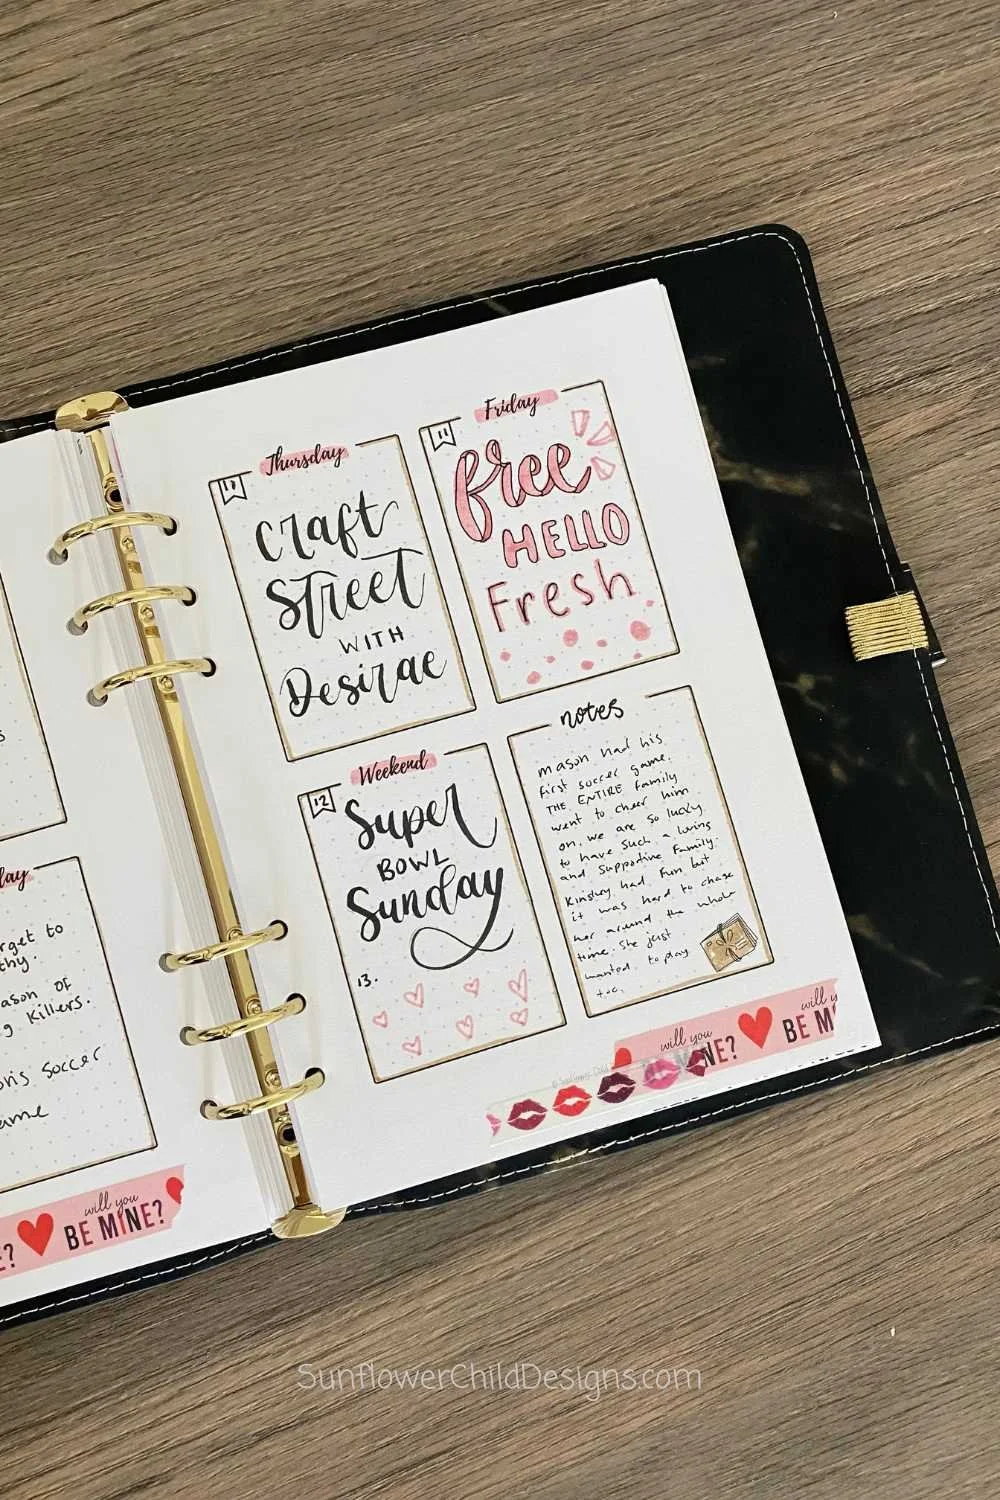 Thursday
10
Craft
Street
WITH
Desirae
Friday
11
free
HELLO
Fresh
Weekend
12
Super
BOWL
Sunday
13.
notes
mason had his
first soccer game.
THE ENTIRE family
went to cheer him
on. we are so lucky
to have such a loving
and supportive family.
Kinsley had fun but
it was hard to chase
her around the whole
time. She just
wanted to play
too.
will you
BE MINE?
will y
BE M
© Sunflower Child
day
rget to
thy.
ason of
g Killers.
ons soccer
ame
will you
BE MINE?
E?
SunflowerChildDesigns.com